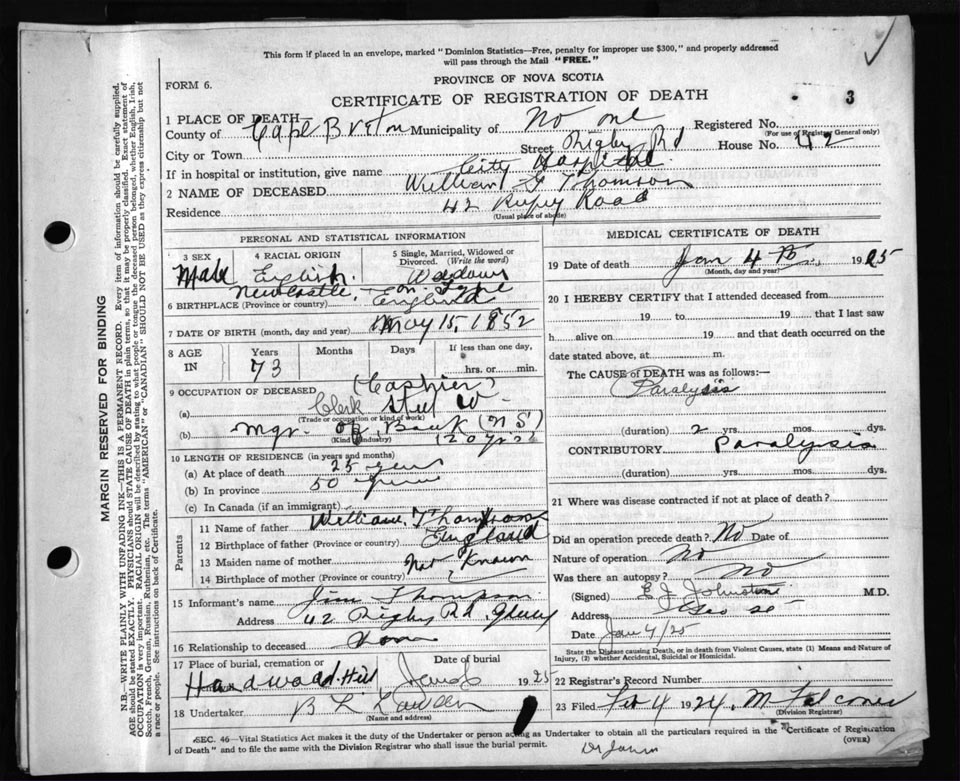 This form if placed in an envelope, marked "Dominion Statistics—Free, penalty for improper use $300," and properly addressed
will pass through the Mail "FREE."
PROVINCE OF NOVA SCOTIA
FORM 6.
CERTIFICATE OF REGISTRATION OF DEATH
3
1 PLACE OF DEATH—
County of Cape Breton Municipality of No one Registered No.
(For use of Registrar General only)
City or Town Street Rigby Rd House No. 42
If in hospital or institution, give name City Hospital
2 NAME OF DECEASED William F Thomson
Residence 42 Road
(Usual place of abode)
PERSONAL AND STATISTICAL INFORMATION
3 SEX 4 RACIAL ORIGIN 5 Single, Married, Widowed or Divorced. (Write the word)
Male English Widower
Newcastle on Tyne
6 BIRTHPLACE (Province or country) England
7 DATE OF BIRTH (month, day and year) May 15, 1852
8 AGE IN Years Months Days If less than one day,
73 hrs. or min.
9 OCCUPATION OF DECEASED (Cashier)
(a) Clerk Steel
(Trade or occupation or kind of work)
(b) Mgr. of Bank (N S)
(Kind of industry) (20 yrs)
10 LENGTH OF RESIDENCE (in years and months)
(a) At place of death 25 years
(b) In province 50 years
(c) In Canada (if an immigrant)
Parents
11 Name of father William Thomson
12 Birthplace of father (Province or country) England
13 Maiden name of mother Not Known
14 Birthplace of mother (Province or country)
15 Informant's name Jim Thompson
Address 42 Rigby Rd.
16 Relationship to deceased
17 Place of burial, cremation or Date of burial
Hardwood Hill Jan 6 1925
18 Undertaker B L
(Name and address)
MEDICAL CERTIFICATE OF DEATH
19 Date of death Jan 4th 1925
(Month, day and year)
20 I HEREBY CERTIFY that I attended deceased from
19 to 19 that I last saw
h alive on 19 and that death occurred on the
date stated above, at m.
The CAUSE of DEATH was as follows:—
Paralysis
(duration) 2 yrs. mos. dys.
CONTRIBUTORY Paralysis
(duration) yrs. mos. dys.
21 Where was disease contracted if not at place of death?
Did an operation precede death? No Date of
Nature of operation No
Was there an autopsy? No
(Signed) E J Johnstone M.D.
Address
Date Jan 4/25
State the Disease causing Death, or in death from Violent Causes, state (1) Means and Nature of Injury, (2) whether Accidental, Suicidal or Homicidal.
22 Registrar's Record Number
23 Filed Feb 4 1924. M Falconer
(Division Registrar)
SEC. 46—Vital Statistics Act makes it the duty of the Undertaker or person acting as Undertaker to obtain all the particulars required in the "Certificate of Registration
of Death" and to file the same with the Division Registrar who shall issue the burial permit. (OVER)
MARGIN RESERVED FOR BINDING
N.B.—WRITE PLAINLY WITH UNFADING INK—THIS IS A PERMANENT RECORD. Every item of information should be carefully supplied.
AGE should be stated EXACTLY. PHYSICIANS should STATE CAUSE OF DEATH in plain terms, so that it may be properly classified. Exact statement of
OCCUPATION is very important. RACIAL ORIGIN will be described by stating to what people or tongue the deceased person belonged, whether English, Irish,
Scotch, French, German, Russian, Ruthenian, etc. The terms "AMERICAN" or "CANADIAN" SHOULD NOT BE USED as they express citizenship but not
a race or people. See instructions on back of Certificate.